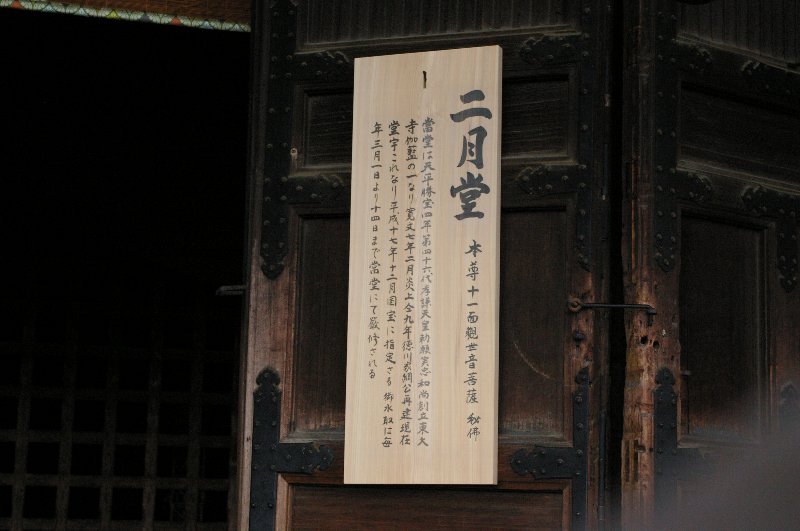 二月堂 本尊十一面観世音菩薩 秘佛
當堂は天平勝宝四年第四十六代孝謙天皇勅願実忠和尚創立東大
寺伽藍の一なり寛文七年二月炎上仝九年徳川家綱公再建現在
堂宇これなり平成十七年十二月国宝に指定さる 御水取は毎
年三月一日より十四日まで當堂にて厳修される